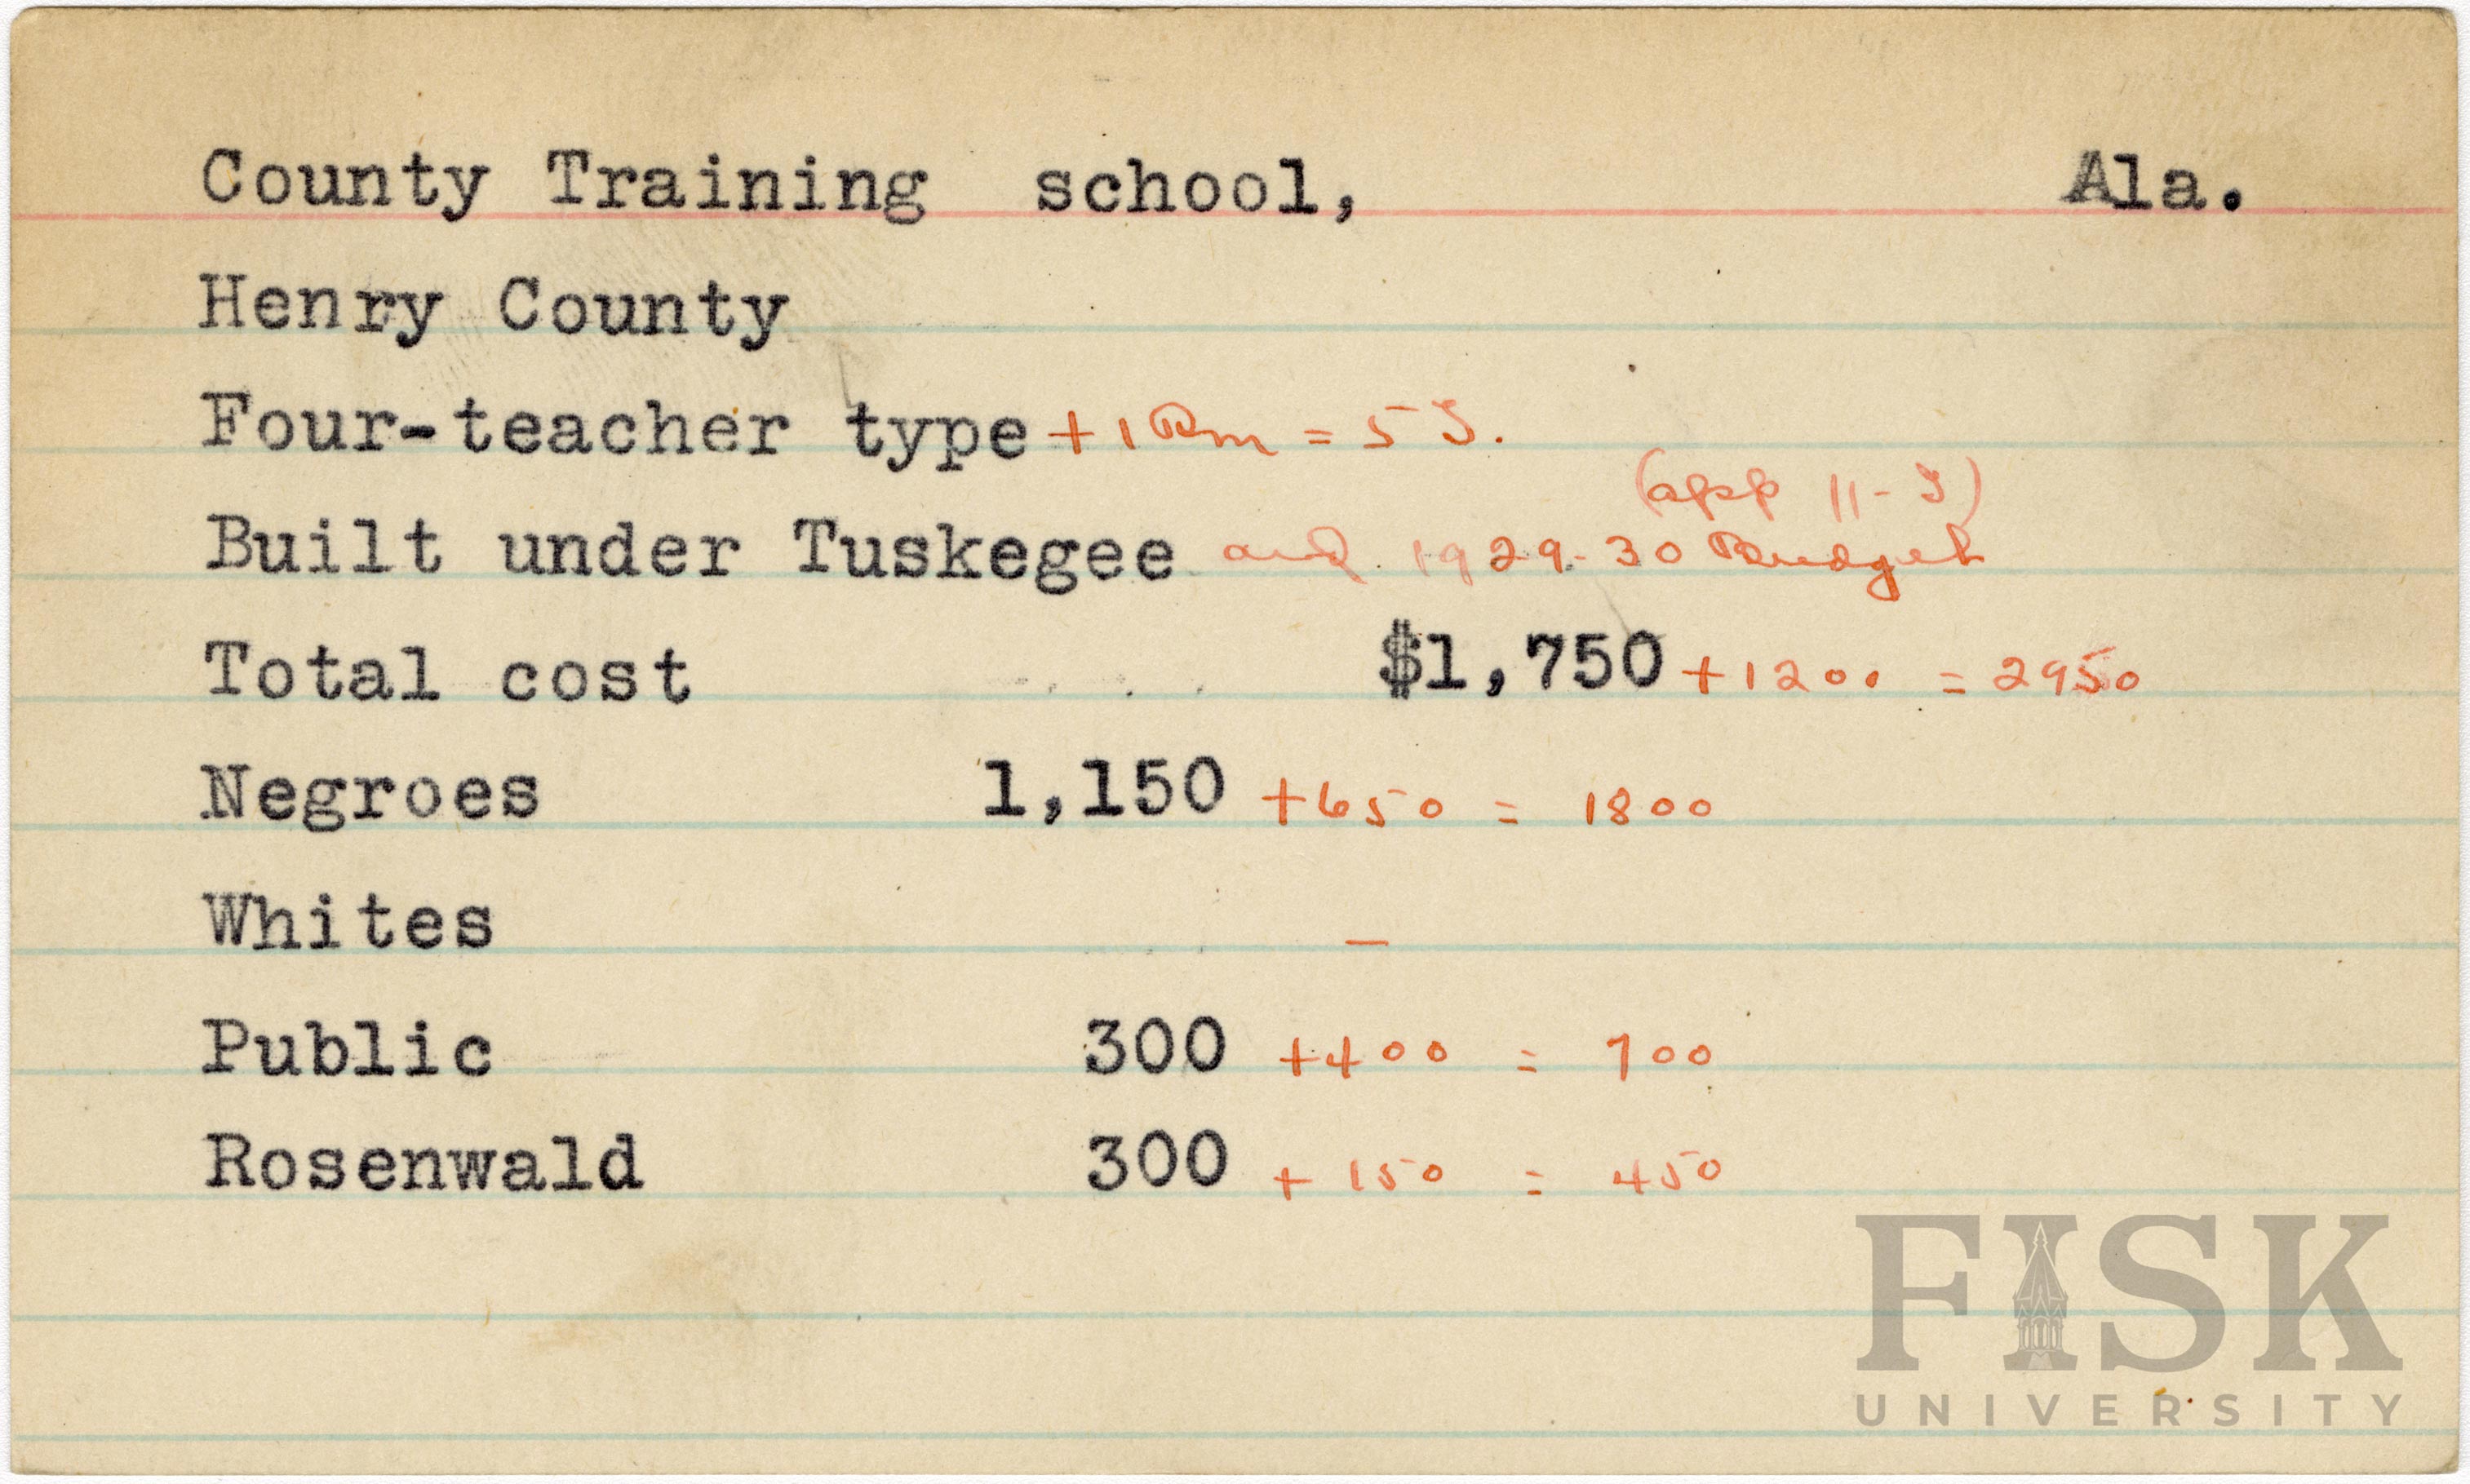 County Training school, Ala.
Henry County
Four-teacher type + 1 Rm = 5 T.
(app 11-T)
Built under Tuskegee and 1929-30 Budget
Total cost $1,750 + 1200 = 2950
Negroes 1,150 + 650 = 1800
Whites –
Public 300 + 400 = 700
Rosenwald 300 + 150 = 450
FISK
UNIVERSITY